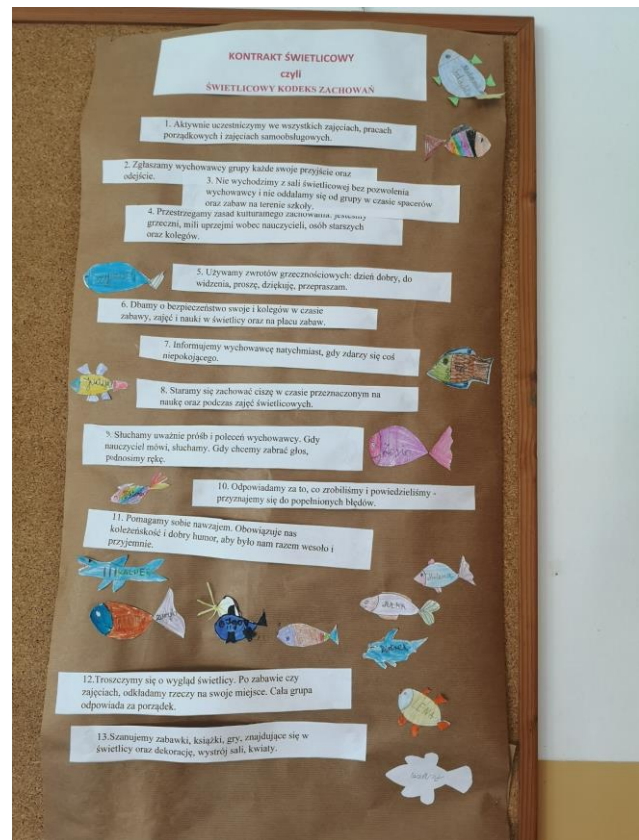 KONTRAKT ŚWIETLICOWY
czyli
ŚWIETLICOWY KODEKS ZACHOWAŃ
1. Aktywnie uczestniczymy we wszystkich zajęciach, pracach
porządkowych i zajęciach samoobsługowych.
2. Zgłaszamy wychowawcy grupy każde swoje przyjście oraz
odejście.
3. Nie wychodzimy z sali świetlicowej bez pozwolenia
wychowawcy i nie oddalamy się od grupy w czasie spacerów
oraz zabaw na terenie szkoły.
4. Przestrzegamy zasad kulturalnego zachowania: jesteśmy
grzeczni, mili uprzejmi wobec nauczycieli, osób starszych
oraz kolegów.
5. Używamy zwrotów grzecznościowych: dzień dobry, do
widzenia, proszę, dziękuję, przepraszam.
6. Dbamy o bezpieczeństwo swoje i kolegów w czasie
zabawy, zajęć i nauki w świetlicy oraz na placu zabaw.
7. Informujemy wychowawcę natychmiast, gdy zdarzy się coś
niepokojącego.
8. Staramy się zachować ciszę w czasie przeznaczonym na
naukę oraz podczas zajęć świetlicowych.
9. Słuchamy uważnie próśb i poleceń wychowawcy. Gdy
nauczyciel mówi, słuchamy. Gdy chcemy zabrać głos,
podnosimy rękę.
10. Odpowiadamy za to, co zrobiliśmy i powiedzieliśmy -
przyznajemy się do popełnionych błędów.
11. Pomagamy sobie nawzajem. Obowiązuje nas
koleżeńskość i dobry humor, aby było nam razem wesoło i
przyjemnie.
LENA
12.Troszczymy się o wygląd świetlicy. Po zabawie czy
zajęciach, odkładamy rzeczy na swoje miejsce. Cała grupa
odpowiada za porządek.
13.Szanujemy zabawki, książki, gry, znajdujące się w
świetlicy oraz dekorację, wystrój sali, kwiaty.